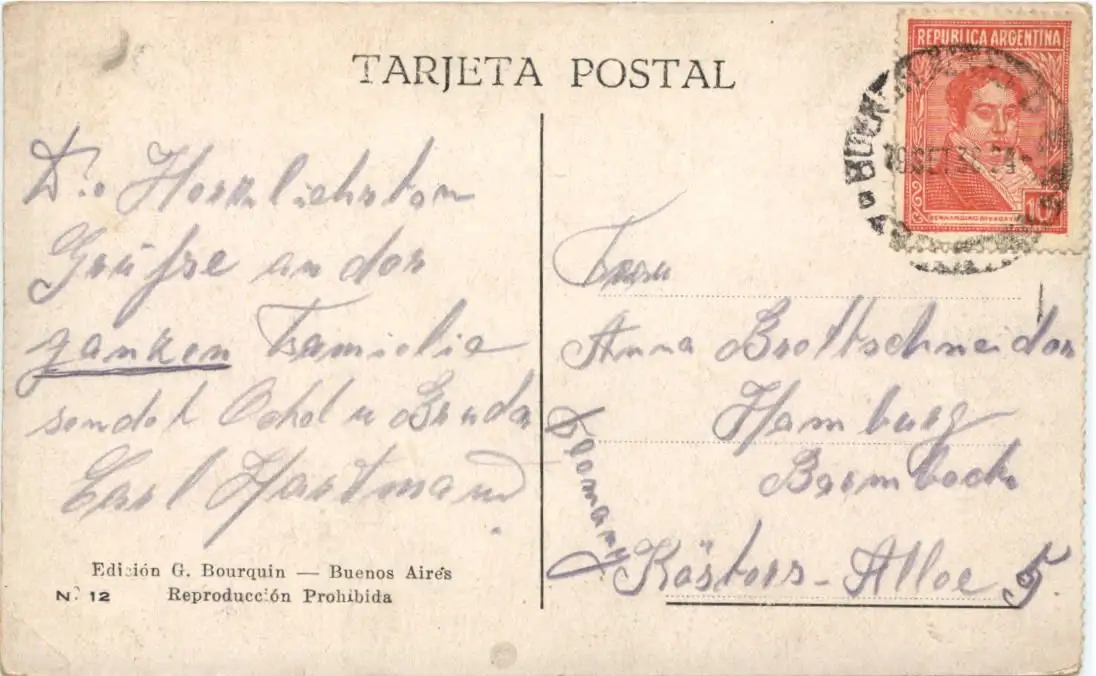 TARJETA POSTAL
REPUBLICA ARGENTINA
BERNARDINO RIVADAVIA
10
Die Herzlichsten
Grüße an der
ganzen Familie
sendet Onkel u Bruder
Carl Hartmann
Edición G. Bourquin — Buenos Aires
Nº 12 Reproducción Prohibida
Frau
Anna Brettschneider
Hamburg
Barmbeck
Germany
Kösters-Allee 5